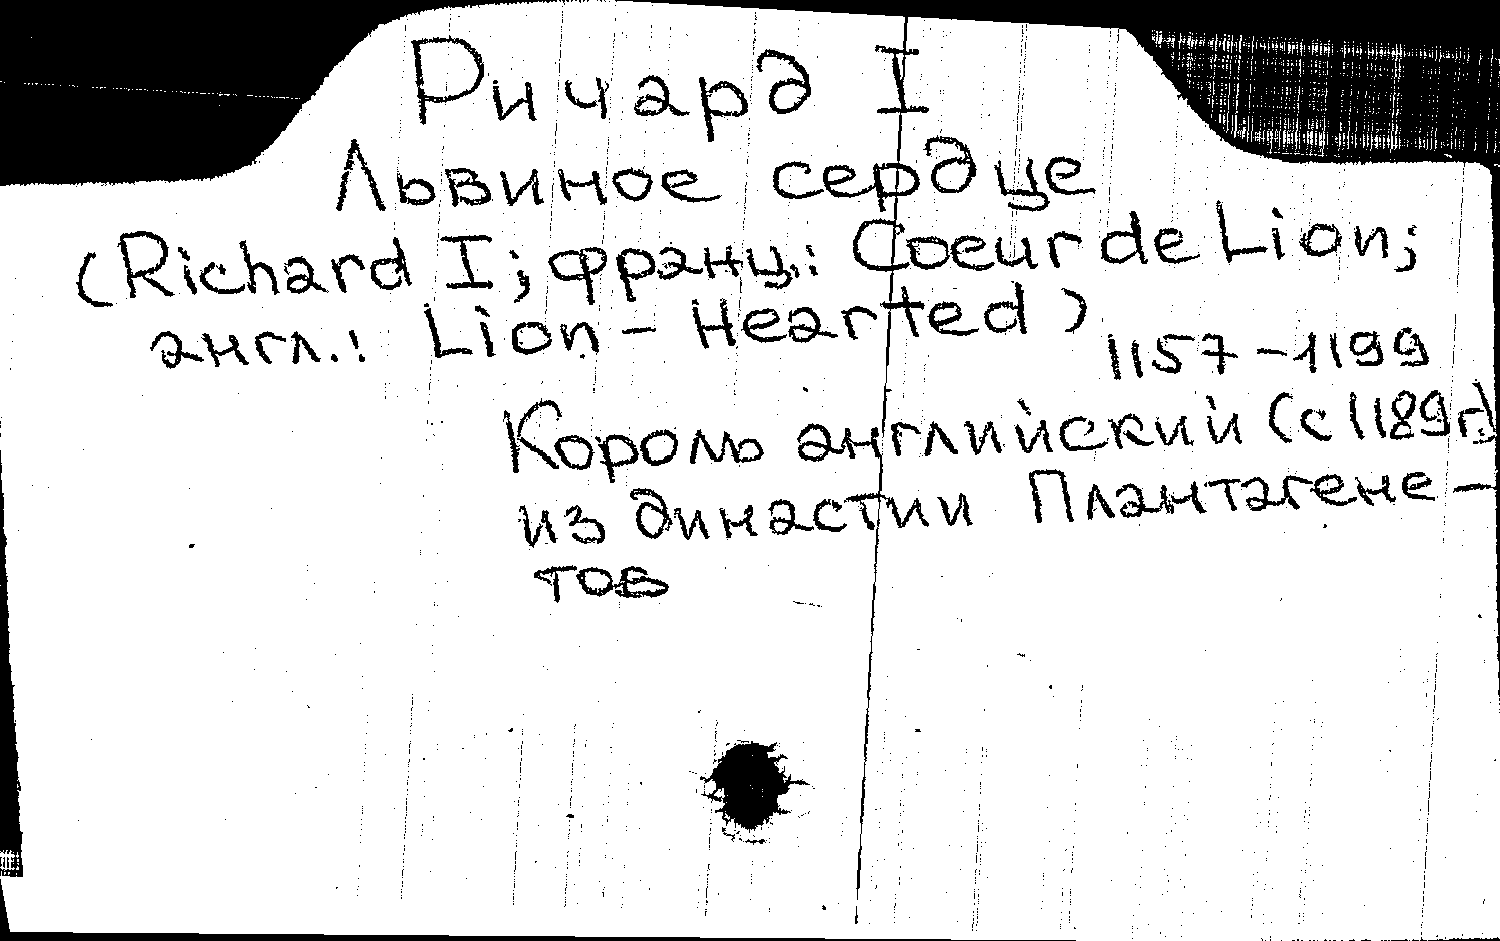 Ричард I
Львиное сердце
(Richard I; франц.: Coeur de Lion;
англ.: Lion - Hearted)
1157-1199
Король английский (с 1189г.)
из династии Плантагене-
тов